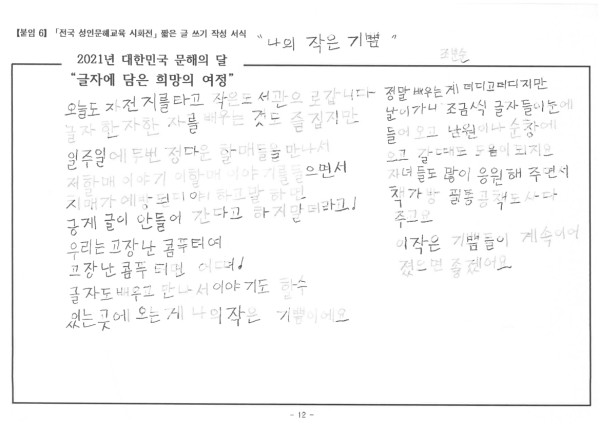 【붙임 6】「전국 성인문해교육 시화전」 짧은 글 쓰기 작성 서식
"나의 작은 기쁨"
2021년 대한민국 문해의 달
"글자에 담은 희망의 여정"
오늘도 자전거를타고 작은도서관으로갑니다
글자 한자한 자를 배우는 것도 즐겁지만
일주일에 두번 정다운 할매들을 만나서
저할매 이야기 이할매 이야기를들으면서
치매가 예방 된디야 하고말 하면
긍게 글이 안들어 간다고 하지말더라고!
우리는 고장난 콤푸터여
고장난 콤푸터면
글자도 배우고 만나서이야기도 할수
있는곳에 오는게 나의작은 기쁨이에요
정말 배우는게 더디고더디지만
날이가니 조금식 글자들이눈에
들어 오고 남원이나 순창에
오고 갈때도 도움이 되지요
자녀들도 많이 응원해 주면서
책가방 필통 공책도사다
주고요
이작은 기쁨들이 계속이어
졌으면 좋겠어요
- 12 -